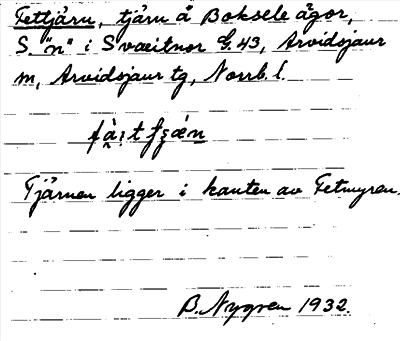 Fettjärn, tjärn å Boksele ägor,
S. "n" i Svæitnor G. 43, Arvidsjaur
m, Arvidsjaur tg, Norrb. l.
Tjärnen ligger i kanten av Fetmyren.
B. Nygren 1932.